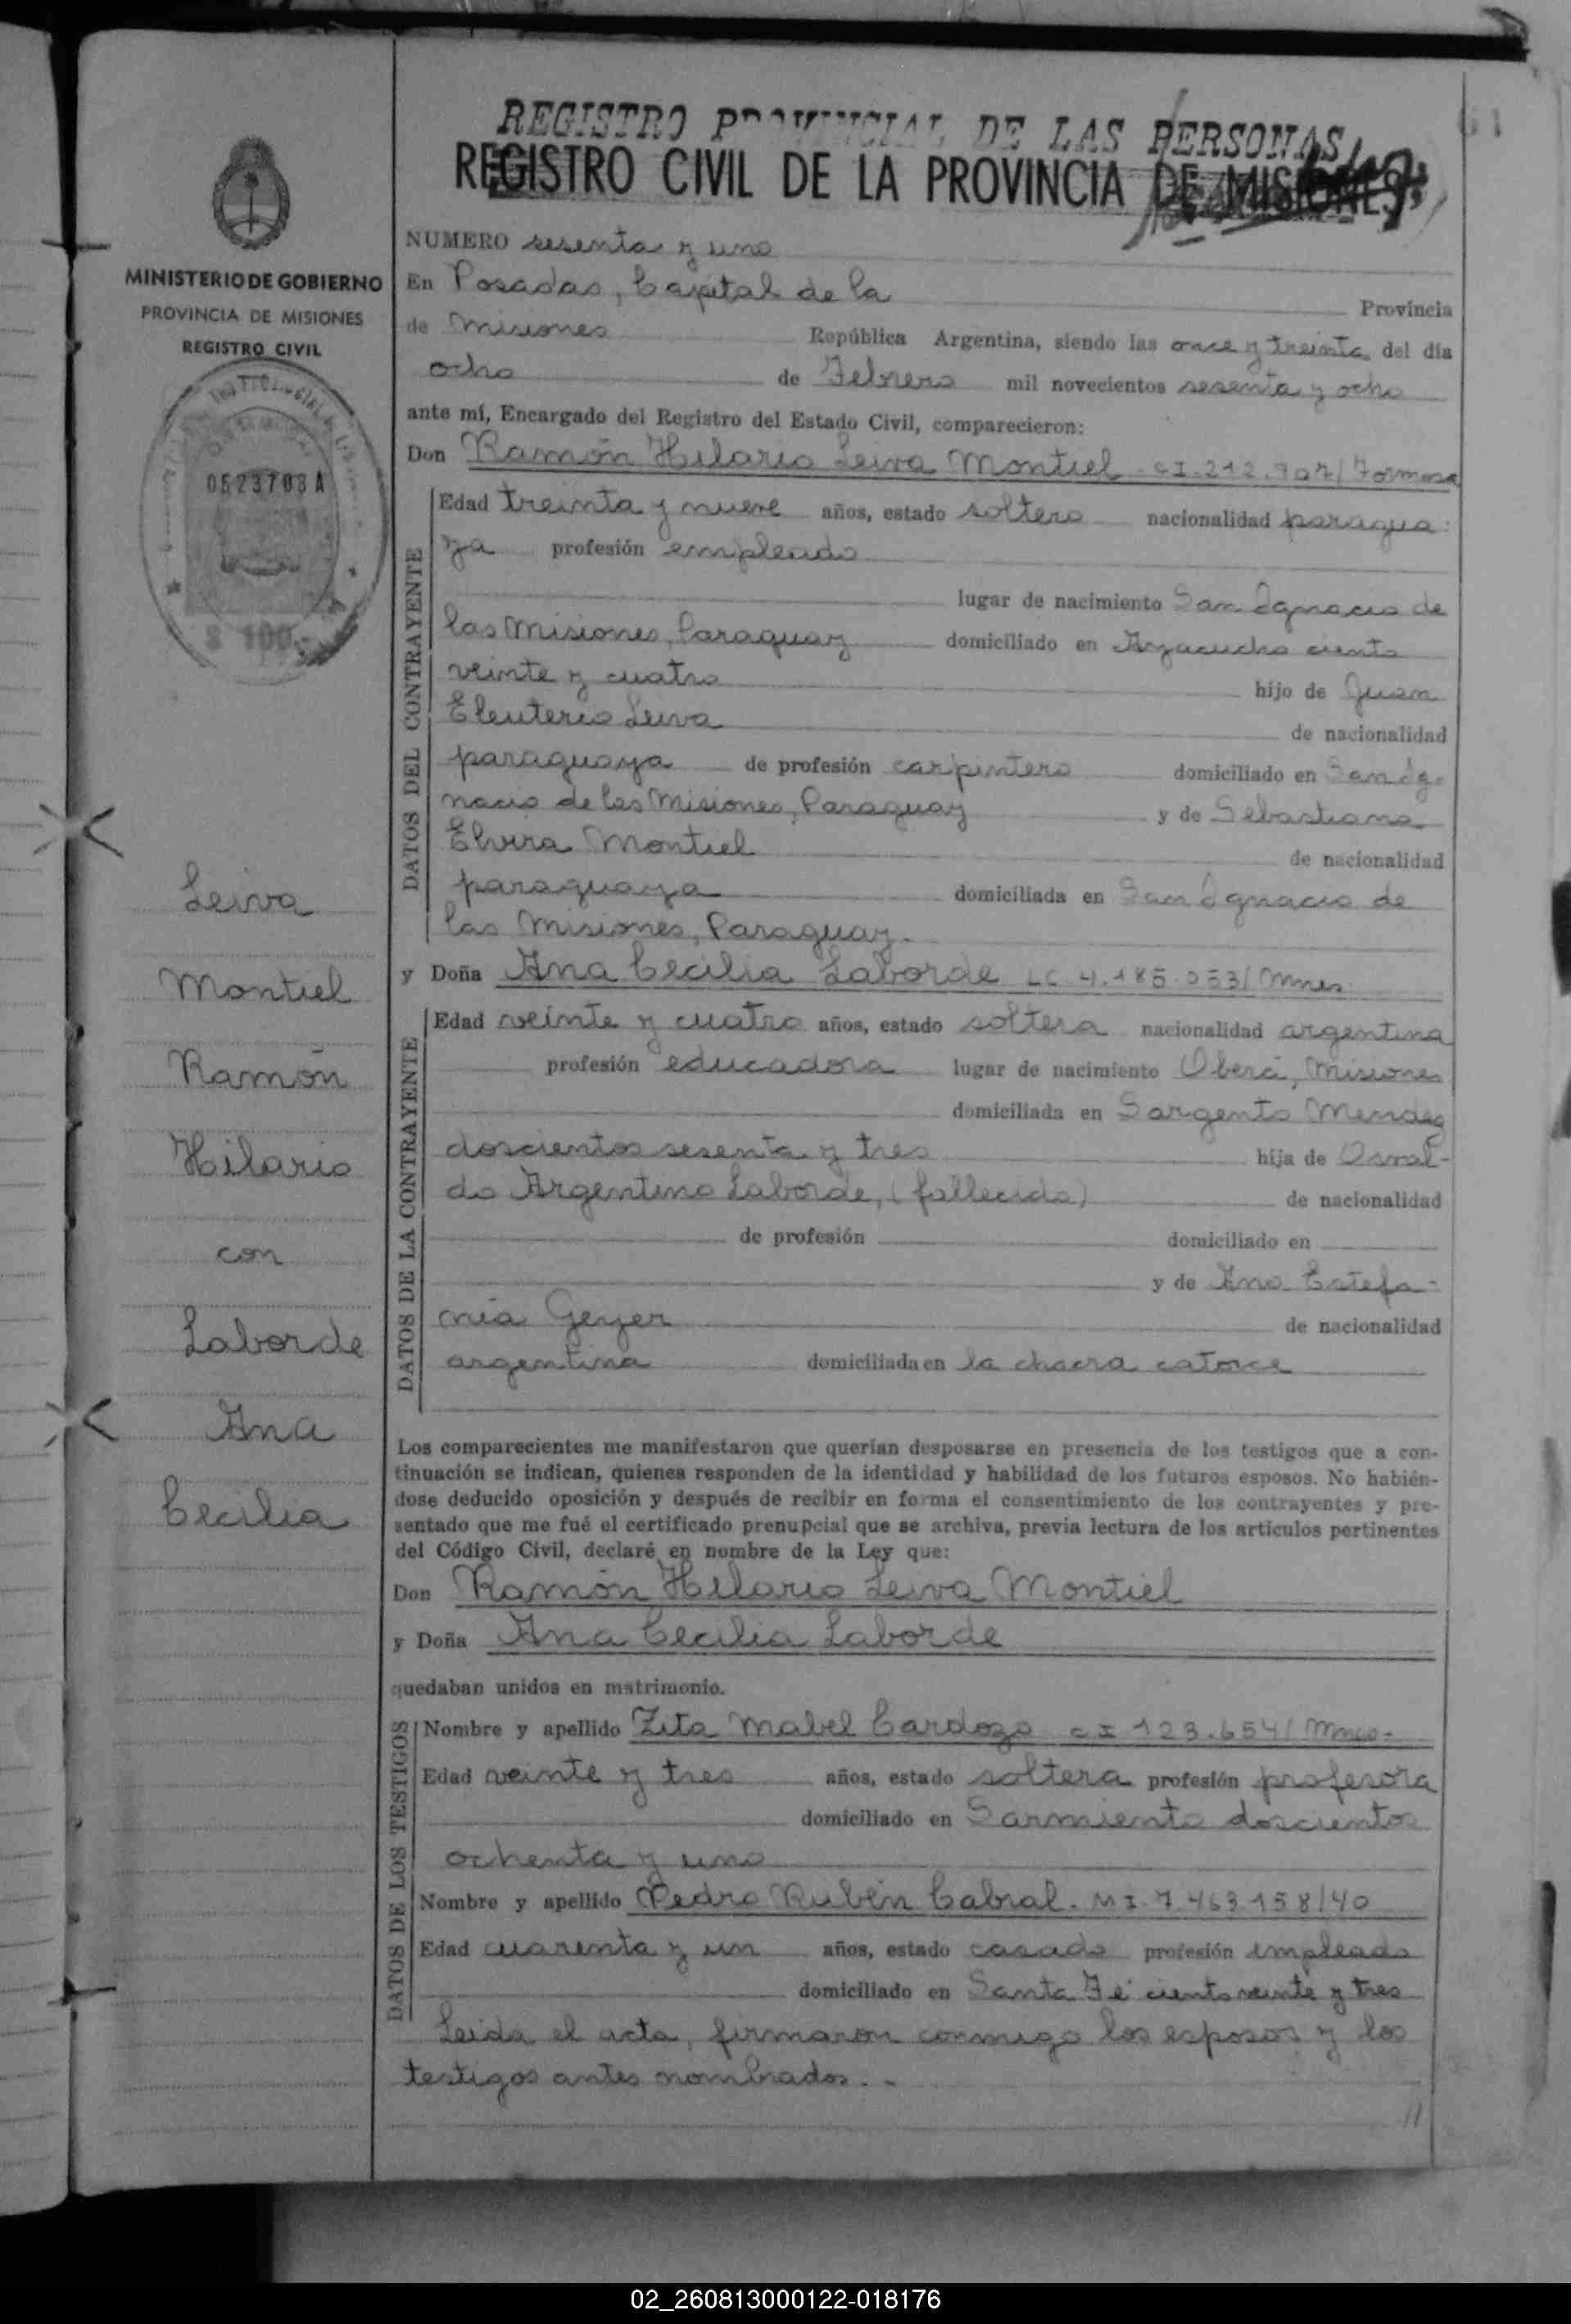 61
REGISTRO PROVINCIAL DE LAS PERSONAS
REGISTRO CIVIL DE LA PROVINCIA DE MISIONES
NUMERO sesenta y uno
En Posadas, Capital de la Provincia
de Misiones República Argentina, siendo las once y treinta del día
ocho de Febrero mil novecientos sesenta y ocho
ante mí, Encargado del Registro del Estado Civil, comparecieron:
Don Ramón Hilario Leiva Montiel - CI. 212.907/Formosa
DATOS DEL CONTRAYENTE
Edad treinta y nueve años, estado soltero nacionalidad paragua-
ya profesión empleado
lugar de nacimiento San Ignacio de
las Misiones, Paraguay domiciliado en Ayacucho ciento
veinte y cuatro hijo de Juan
Eleuterio Leiva de nacionalidad
paraguaya de profesión carpintero domiciliado en San Ig-
nacio de las Misiones, Paraguay y de Sebastiana
Elvira Montiel de nacionalidad
paraguaya domiciliada en San Ignacio de
las Misiones, Paraguay.
y Doña Ana Cecilia Laborde LC. 4.185.053/Mnes.
DATOS DE LA CONTRAYENTE
Edad veinte y cuatro años, estado soltera nacionalidad argentina
profesión educadora lugar de nacimiento Oberá, Misiones
domiciliada en Sargento Mendez
doscientos sesenta y tres hija de Osval-
do Argentino Laborde, (fallecido) de nacionalidad
de profesión domiciliado en
y de Ana Estefa-
nía Geyer de nacionalidad
argentina domiciliada en la chacra catorce
Los comparecientes me manifestaron que querían desposarse en presencia de los testigos que a con-
tinuación se indican, quienes responden de la identidad y habilidad de los futuros esposos. No habién-
dose deducido oposición y después de recibir en forma el consentimiento de los contrayentes y pre-
sentado que me fué el certificado prenupcial que se archiva, previa lectura de los artículos pertinentes
del Código Civil, declaré en nombre de la Ley que:
Don Ramón Hilario Leiva Montiel
y Doña Ana Cecilia Laborde
quedaban unidos en matrimonio.
DATOS DE LOS TESTIGOS
Nombre y apellido Zita Mabel Cardozo CI 123.654/Mnes.-
Edad veinte y tres años, estado soltera profesión profesora
domiciliado en Sarmiento doscientos
ochenta y uno
Nombre y apellido Pedro Rubén Cabral. MI. 7.463.158/40
Edad cuarenta y un años, estado casado profesión empleado
domiciliado en Santa Fé ciento veinte y tres
Leída el acta, firmaron conmigo los esposos y los
testigos antes nombrados. -
//
MINISTERIO DE GOBIERNO
PROVINCIA DE MISIONES
REGISTRO CIVIL
0523703 A
$ 100
Leiva
Montiel
Ramón
Hilario
con
Laborde
Ana
Cecilia
02_260813000122-018176